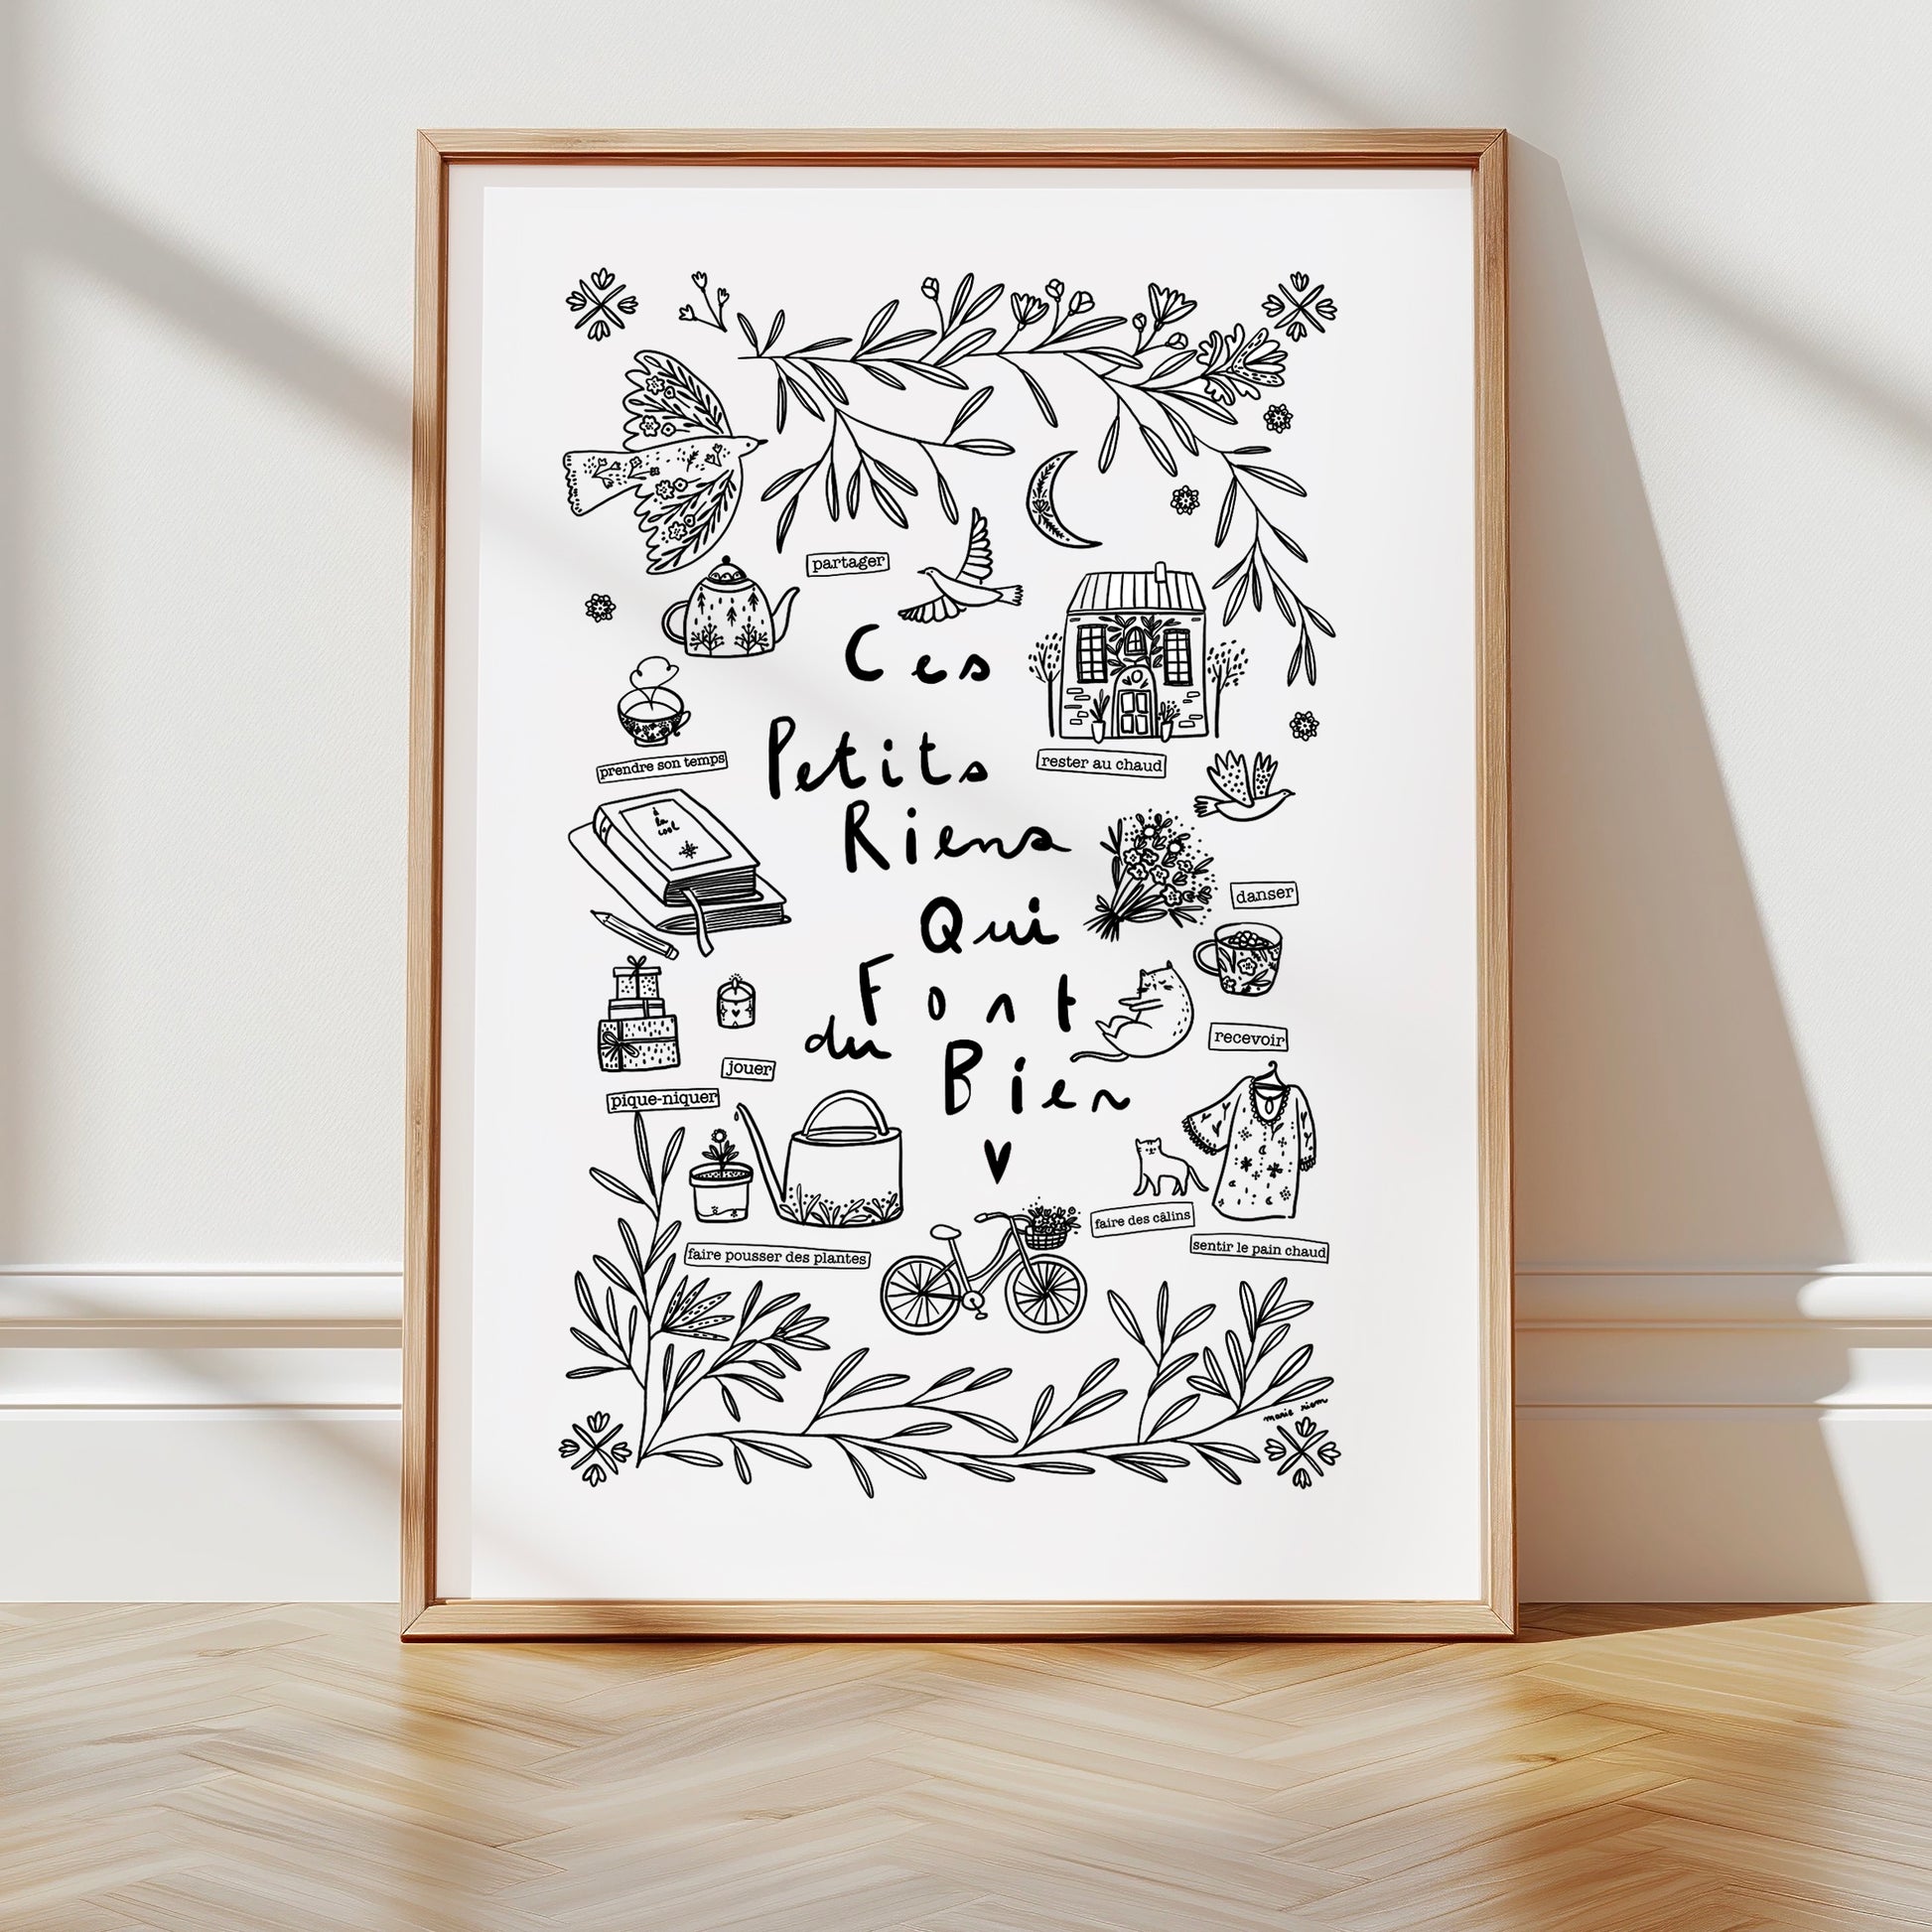 partager
Ces
Petits
prendre son temps
rester au chaud
à
la
cool
Riens
Qui
danser
Font
du
Bien
recevoir
jouer
pique-niquer
faire des câlins
sentir le pain chaud
faire pousser des plantes
marie riem